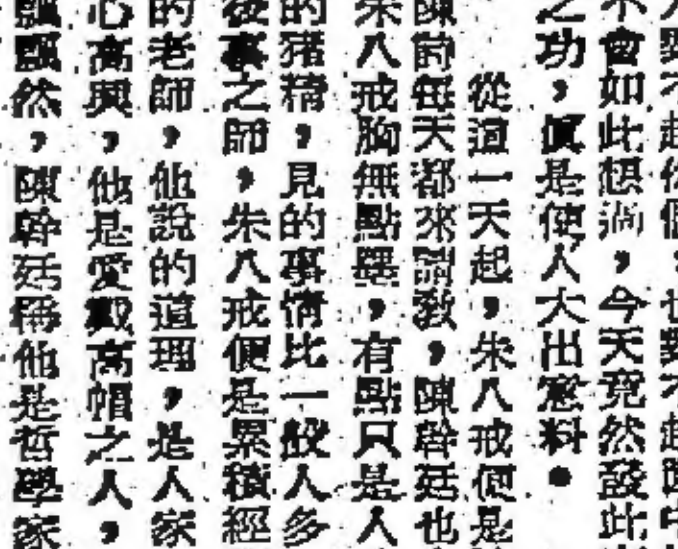 不會如此想，今天竟然發此
之功，眞是使人大出意料。
從這一天起，朱八戒便是
陳詩每天都來請教，陳幹廷也
朱八戒胸無點墨，有點只是人
的猪精，見的事情比一般人多
後事之師，朱八戒便是累積經
的老師，他說的道理，是人家
心高興，他是愛戴高帽之人，
飄飄然，陳幹廷稱他是哲學家